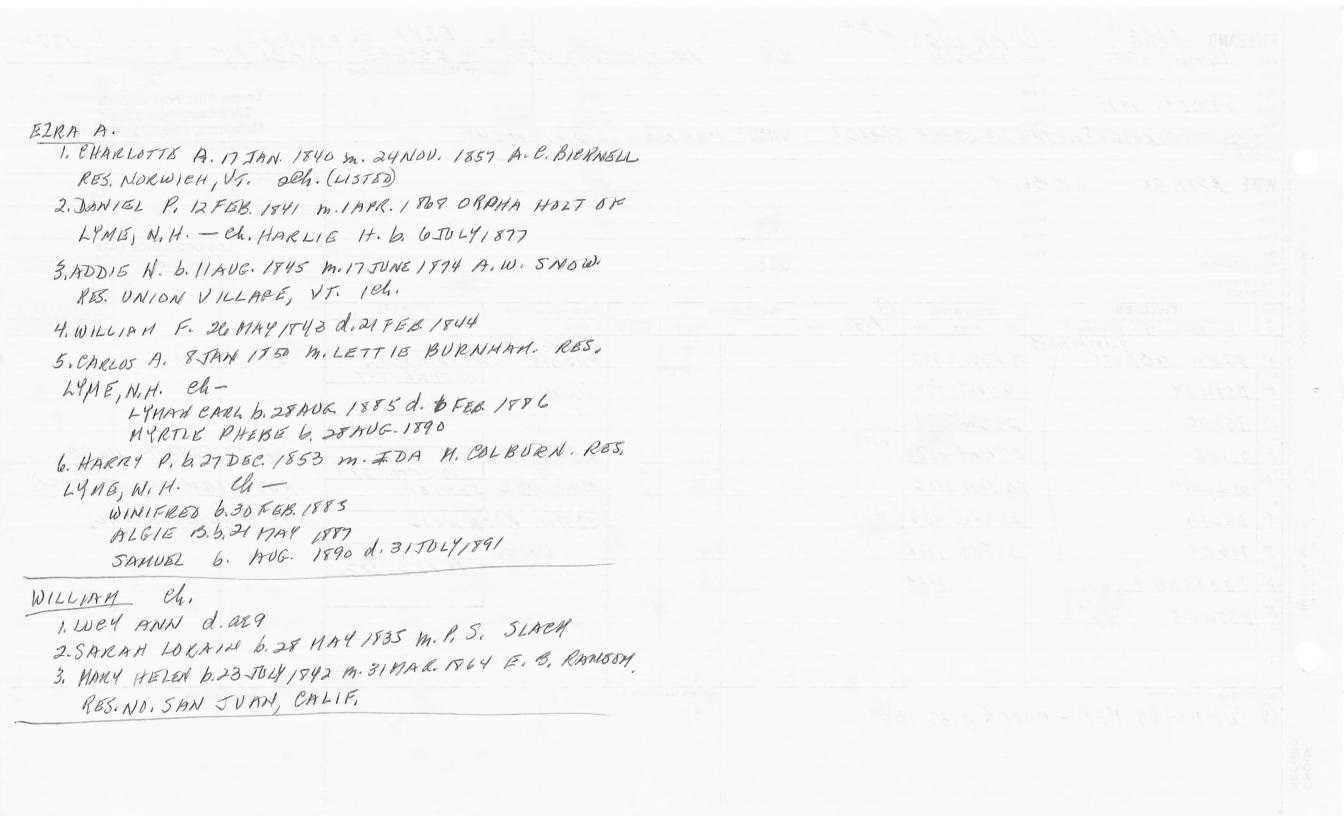 EZRA A.
1. CHARLOTTE A. 17 JAN. 1840 m. 24 NOV. 1857 A.C. BICKNELL
RES. NORWICH, VT. 2Ch. (LISTED)
2. DANIEL P. 12 FEB. 1841 m. 1 APR. 1869 ORPHA HOLT OF
LYME, N.H. — Ch. HARLIE H. b. 6 JULY 1877
3. ADDIE N. b. 11 AUG. 1845 m. 17 JUNE 1874 A.W. SNOW.
RES. UNION VILLAGE, VT. 1Ch.
4. WILLIAM F. 26 MAY 1843 d. 21 FEB 1844
5. CARLOS A. 8 JAN 1850 m. LETTIE BURNHAM. RES.
LYME, N.H. Ch —
LYMAN CARL b. 28 AUG 1885 d. 6 FEB 1886
MYRTLE PHEBE b. 28 AUG. 1890
6. HARRY P. b. 27 DEC. 1853 m. IDA M. COLBURN. RES.
LYME, N.H. Ch —
WINIFRED b. 30 FEB. 1883
ALGIE B. b. 21 MAY 1887
SAMUEL b. AUG. 1890 d. 31 JULY 1891
WILLIAM Ch.
1. LUCY ANN d. ae 9
2. SARAH LORAIN b. 28 MAY 1835 m. P.S. SLACK
3. MARY HELEN b. 23 JULY 1842 m. 31 MAR. 1864 E.B. RANSOM.
RES. NO. SAN JUAN, CALIF.